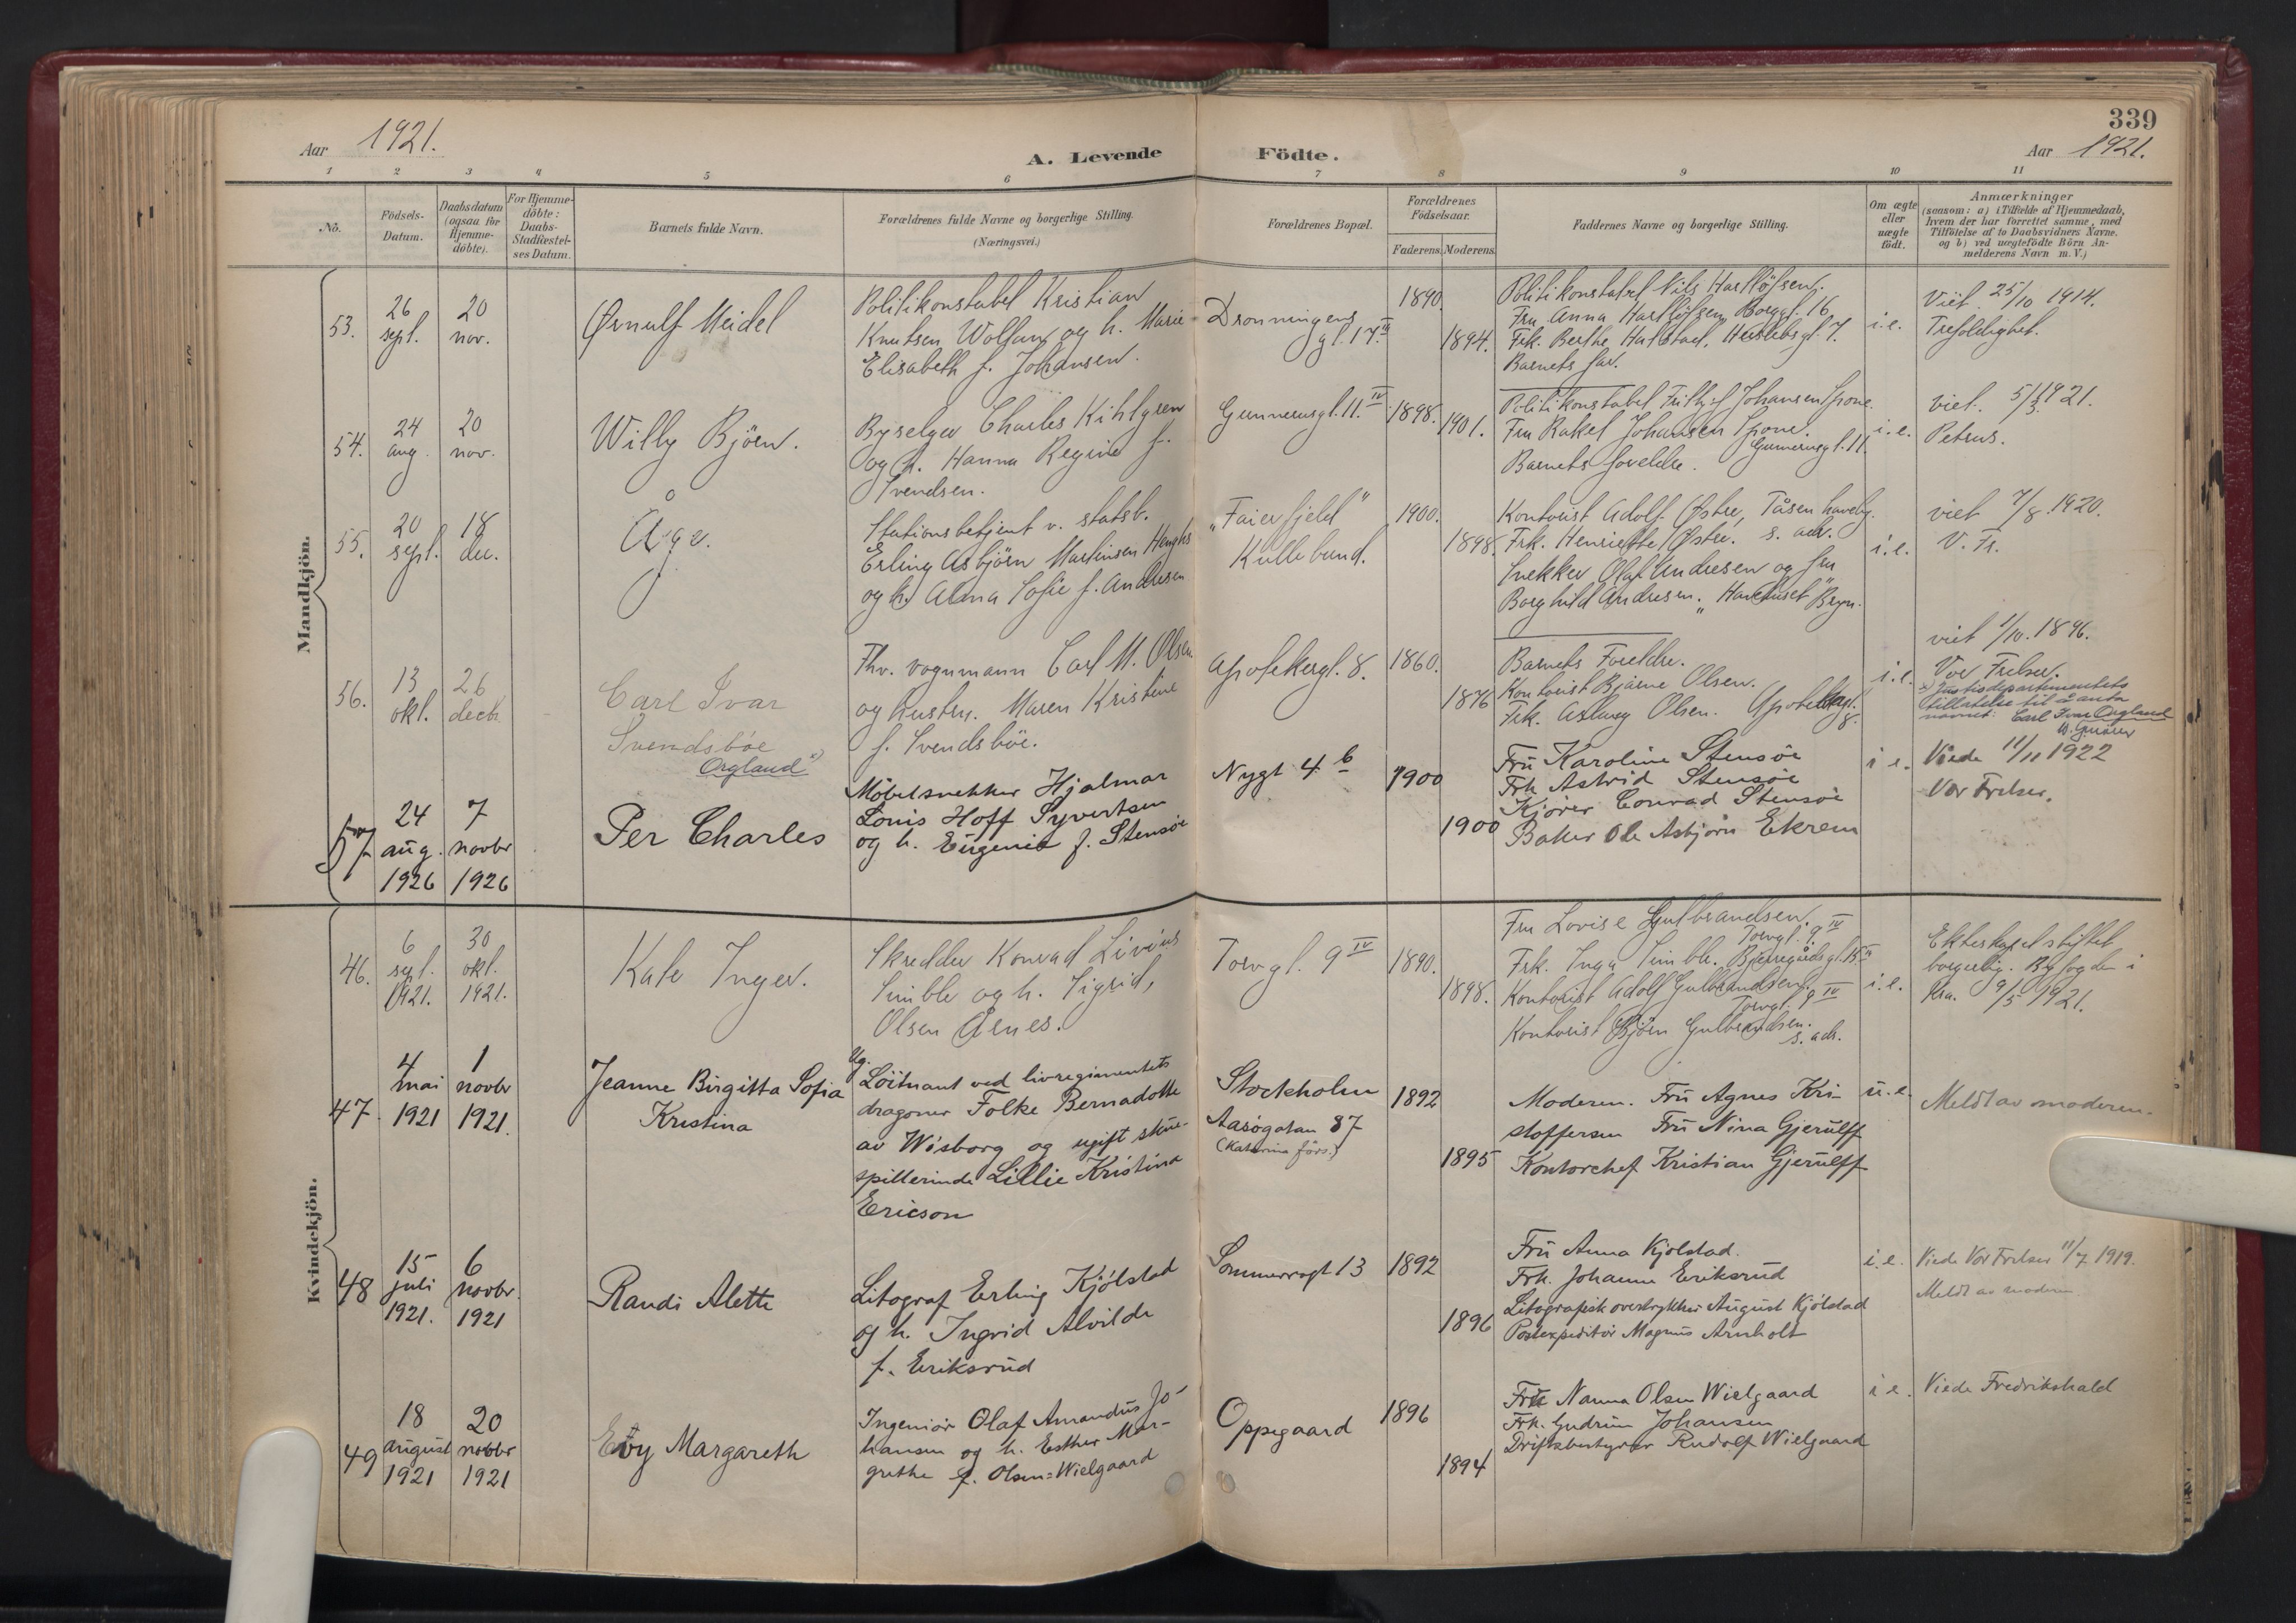 339
Aar 1921.
A. Levende Födte.
Aar 1921.
1 2 3 4 5 6 7 8 9 10 11
No.
Födsels-
Datum.
Daabsdatum
(ogsaa för
Hjemme-
döbte).
For Hjemme-
döbte:
Daabs-
Stadfæstel-
ses Datum.
Barnets fulde Navn.
Forældrenes fulde Navne og borgerlige Stilling.
(Næringsvei.)
Forældrenes Bopæl.
Forældrenes
Födselsaar.
Faderens. Moderens.
Faddernes Navne og borgerlige Stilling.
Om ægte
eller
uægte
födt.
Anmærkninger
(saasom: a) i Tilfælde af Hjemmedaab,
hvem der har forrettet samme, med
Tilföielse af to Daabsvidners Navne.
og b) ved uægtefödte Börn An-
melderens Navn m. V.)
Mandkjön.
53.
26
sept.
20
nov.
Ørnulf Meidel
Politikonstabel Kristian
Knutsen Wollan og h. Marie
Elisabeth f. Johansen.
Dronningens
gt. 17 III
1890.
1894.
Politikonstabel Nils
Fru Anna
Frk. Berthe
Barnets far.
i. e.
Viet 25/10 1914.
Trefoldighet.
54.
24
aug.
20
nov.
Willy Björn.
Byselger Charles Kihlgren
og h. Hanna Regine f.
Svendsen.
Gunnerusgt. 11. IV
1898.
1901.
Politikonstabel Fritjof Johansen
Fru Rakel Johansen
Gunnerusgt. 11.
Barnets foreldre.
i. e.
viet. 5/3 1921.
Petrus.
55.
20
sept.
18
des.
Åge.
Stationsbetjent v. statsb.
Erling Asbjörn Martinsen
og h. Alma Sofie f. Andresen
"Faierfjeld"
Kullebund.
1900.
1898.
Kontorist Adolf Østre, Tåsen haveby.
Frk. Henriette Østre. s. adr.
Snekker Olaf Andresen og fru
Borghild Andresen. "Havehuset" Bryn.
i. e.
viet 7/8. 1920.
V. Fr.
56.
13
okt.
26
decb.
Carl Ivar
Svendsböe
Orgland x)
Fhv. vognmann Carl M. Olsen
og hustru Maren Kristine
f. Svendsböe.
Apotekergt. 8.
1860.
1876
Barnets Foreldre.
Kontorist Bjarne Olsen.
Frk. Aslaug Olsen. Apotekergt.
8.
i. e.
viet 1/10. 1896.
Vor Frelser.
x) Justisdepartementets
tillatelse til å anta
navnet: Carl Ivar Orgland
57
24
aug.
1926
7
novbr
1926
Per Charles
Möbelsnekker Hjalmar
Louis Hoff Syvertsen
og h. Eugenie f. Stensöe
Nygt 4 b
1900
1900
Fru Karoline Stensöe
Frk Astrid Stensöe
Kjörer Conrad Stensöe
Baker Ole Asbjörn Ekrem
i e.
Viede 11/11 1922
Vor Frelser.
Kvindekjön.
46.
6
sept.
1921.
30
okt.
1921.
Kate Inger.
Skredder Konrad Livius
Simble og h. Sigrid,
Olsen Årnes.
Torvgt. 9 IV
1890.
1898.
Fru Lovise Gulbrandsen.
Torvgt. 9 IV
Frk. Inga Simble. Bjerregårdsgt. 15 II
Kontorist Adolf Gulbrandsen.
Torvgt. 9 IV
Kontorist Björn Gulbrandsen.
s. adr.
i. e.
Ekteskapet stiftet
borgerlig. Byfogden i
Kra. 9/5 1921.
47
4
mai
1921
1
novbr
1921.
Jeanne Birgitta Sofia
Kristina
Ug.
Löitnant ved livregimentets
dragoner Folke Bernadotte
av Wisborg og ugift skue-
spillerinde Lillie Kristina
Ericson
Stockholm
Aasögatan 87
(Katarina förs.)
1892
1895
Moderen. Fru Agnes Kri-
stoffersen Fru Nina Gjerulff
Kontorchef Kristian Gjerulff
u. e.
Meldt av moderen.
48
15
juli
1921.
6
novbr.
1921
Randi Alette
Litograf Erling Kjölstad
og h. Ingrid Alvilde
f. Eriksrud
Sommerrogt 13
1892
1896
Fru Anna Kjölstad.
Frk. Johanne Eriksrud
Litografisk overtrykker August Kjölstad
Postexpeditör Magnus Arnholt
i. e.
Viede Vor Frelser 11/7 1919.
Meldt av moderen
49
18
august
1921
20
novbr
1921
Evy Margareth
Ingeniör Olaf Amandus Jo-
hansen og h. Esther Mar-
grethe f. Olsen=Wielgaard
Oppegaard
1896
1894
Fru Nanna Olsen Wielgaard
Frk. Gudrun Johansen
Driftsbestyrer Rudolf Wielgaard
i e.
Viede Fredrikshald